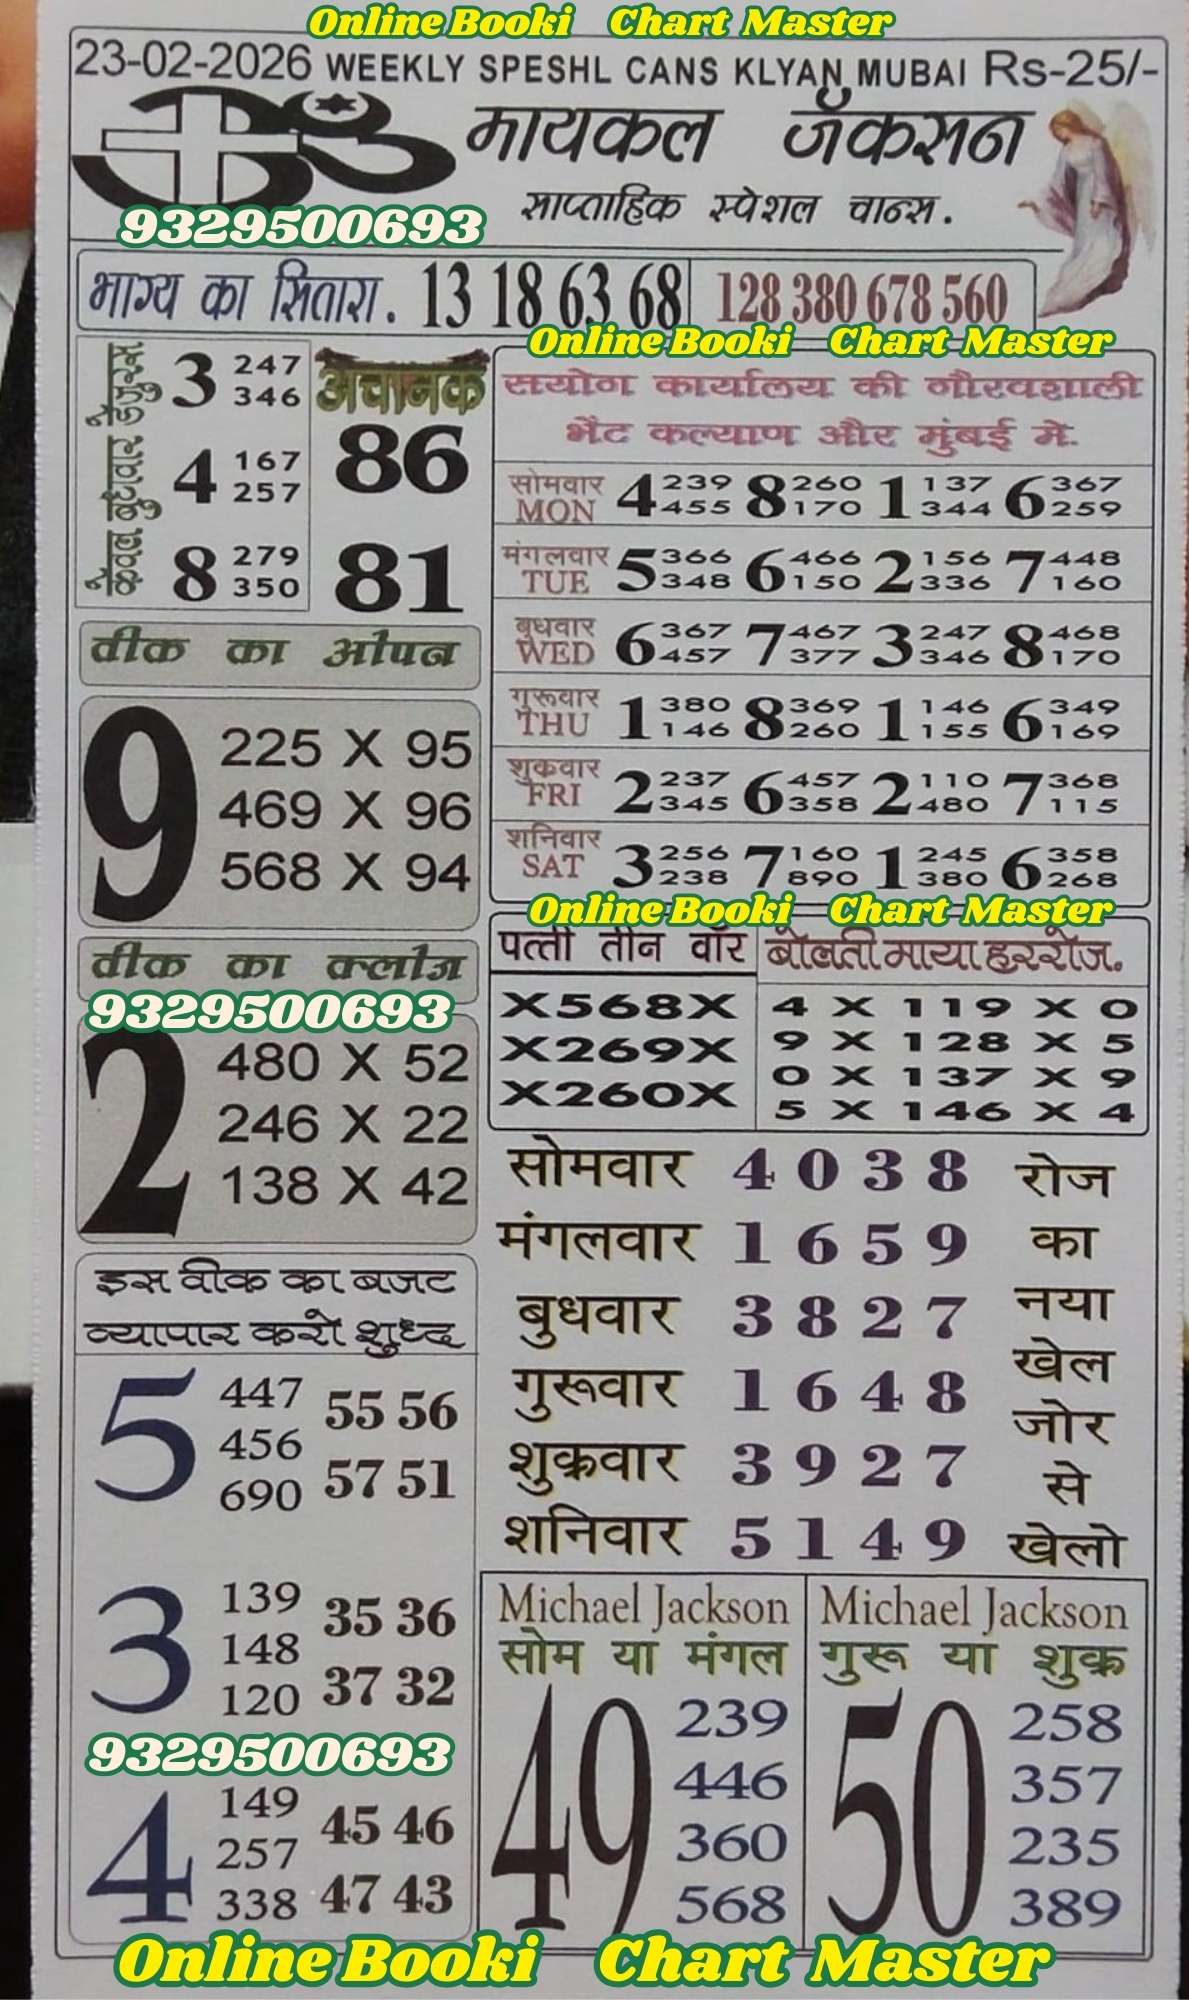 Online Booki Chart Master
23-02-2026 WEEKLY SPESHL CANS KLYAN MUBAI Rs-25/-
मायकल जॅकसन
साप्ताहिक स्पेशल चान्स.
9329500693
भाग्य का सितारा. 13 18 63 68 128 380 678 560
Online Booki Chart Master
3 247
346
4 167
257
8 279
350
अचानक
86
81
वीक का ओपन
9
225 X 95
469 X 96
568 X 94
वीक का क्लोज
9329500693
2
480 X 52
246 X 22
138 X 42
इस वीक का बजट
व्यापार करो शुध्द
5
447
456
690
55 56
57 51
3
139
148
120
35 36
37 32
9329500693
4
149
257
338
45 46
47 43
सयोग कार्यालय की गौरवशाली
भेंट कल्याण और मुंबई मे.
सोमवार 4 239 8 260 1 137 6 367
MON 455 170 344 259
मंगलवार 5 366 6 466 2 156 7 448
TUE 348 150 336 160
बुधवार 6 367 7 467 3 247 8 468
WED 457 377 346 170
गुरूवार 1 380 8 369 1 146 6 349
THU 146 260 155 169
शुक्रवार 2 237 6 457 2 110 7 368
FRI 345 358 480 115
शनिवार 3 256 7 160 1 245 6 358
SAT 238 890 380 268
Online Booki Chart Master
पत्ती तीन वॉर
X568X
X269X
X260X
बोलती माया हररोज.
4 X 119 X 0
9 X 128 X 5
0 X 137 X 9
5 X 146 X 4
सोमवार 4 0 3 8
मंगलवार 1 6 5 9
बुधवार 3 8 2 7
गुरूवार 1 6 4 8
शुक्रवार 3 9 2 7
शनिवार 5 1 4 9
रोज
का
नया
खेल
जोर
से
खेलो
Michael Jackson
सोम या मंगल
49
239
446
360
568
Michael Jackson
गुरू या शुक्र
50
258
357
235
389
Online Booki Chart Master